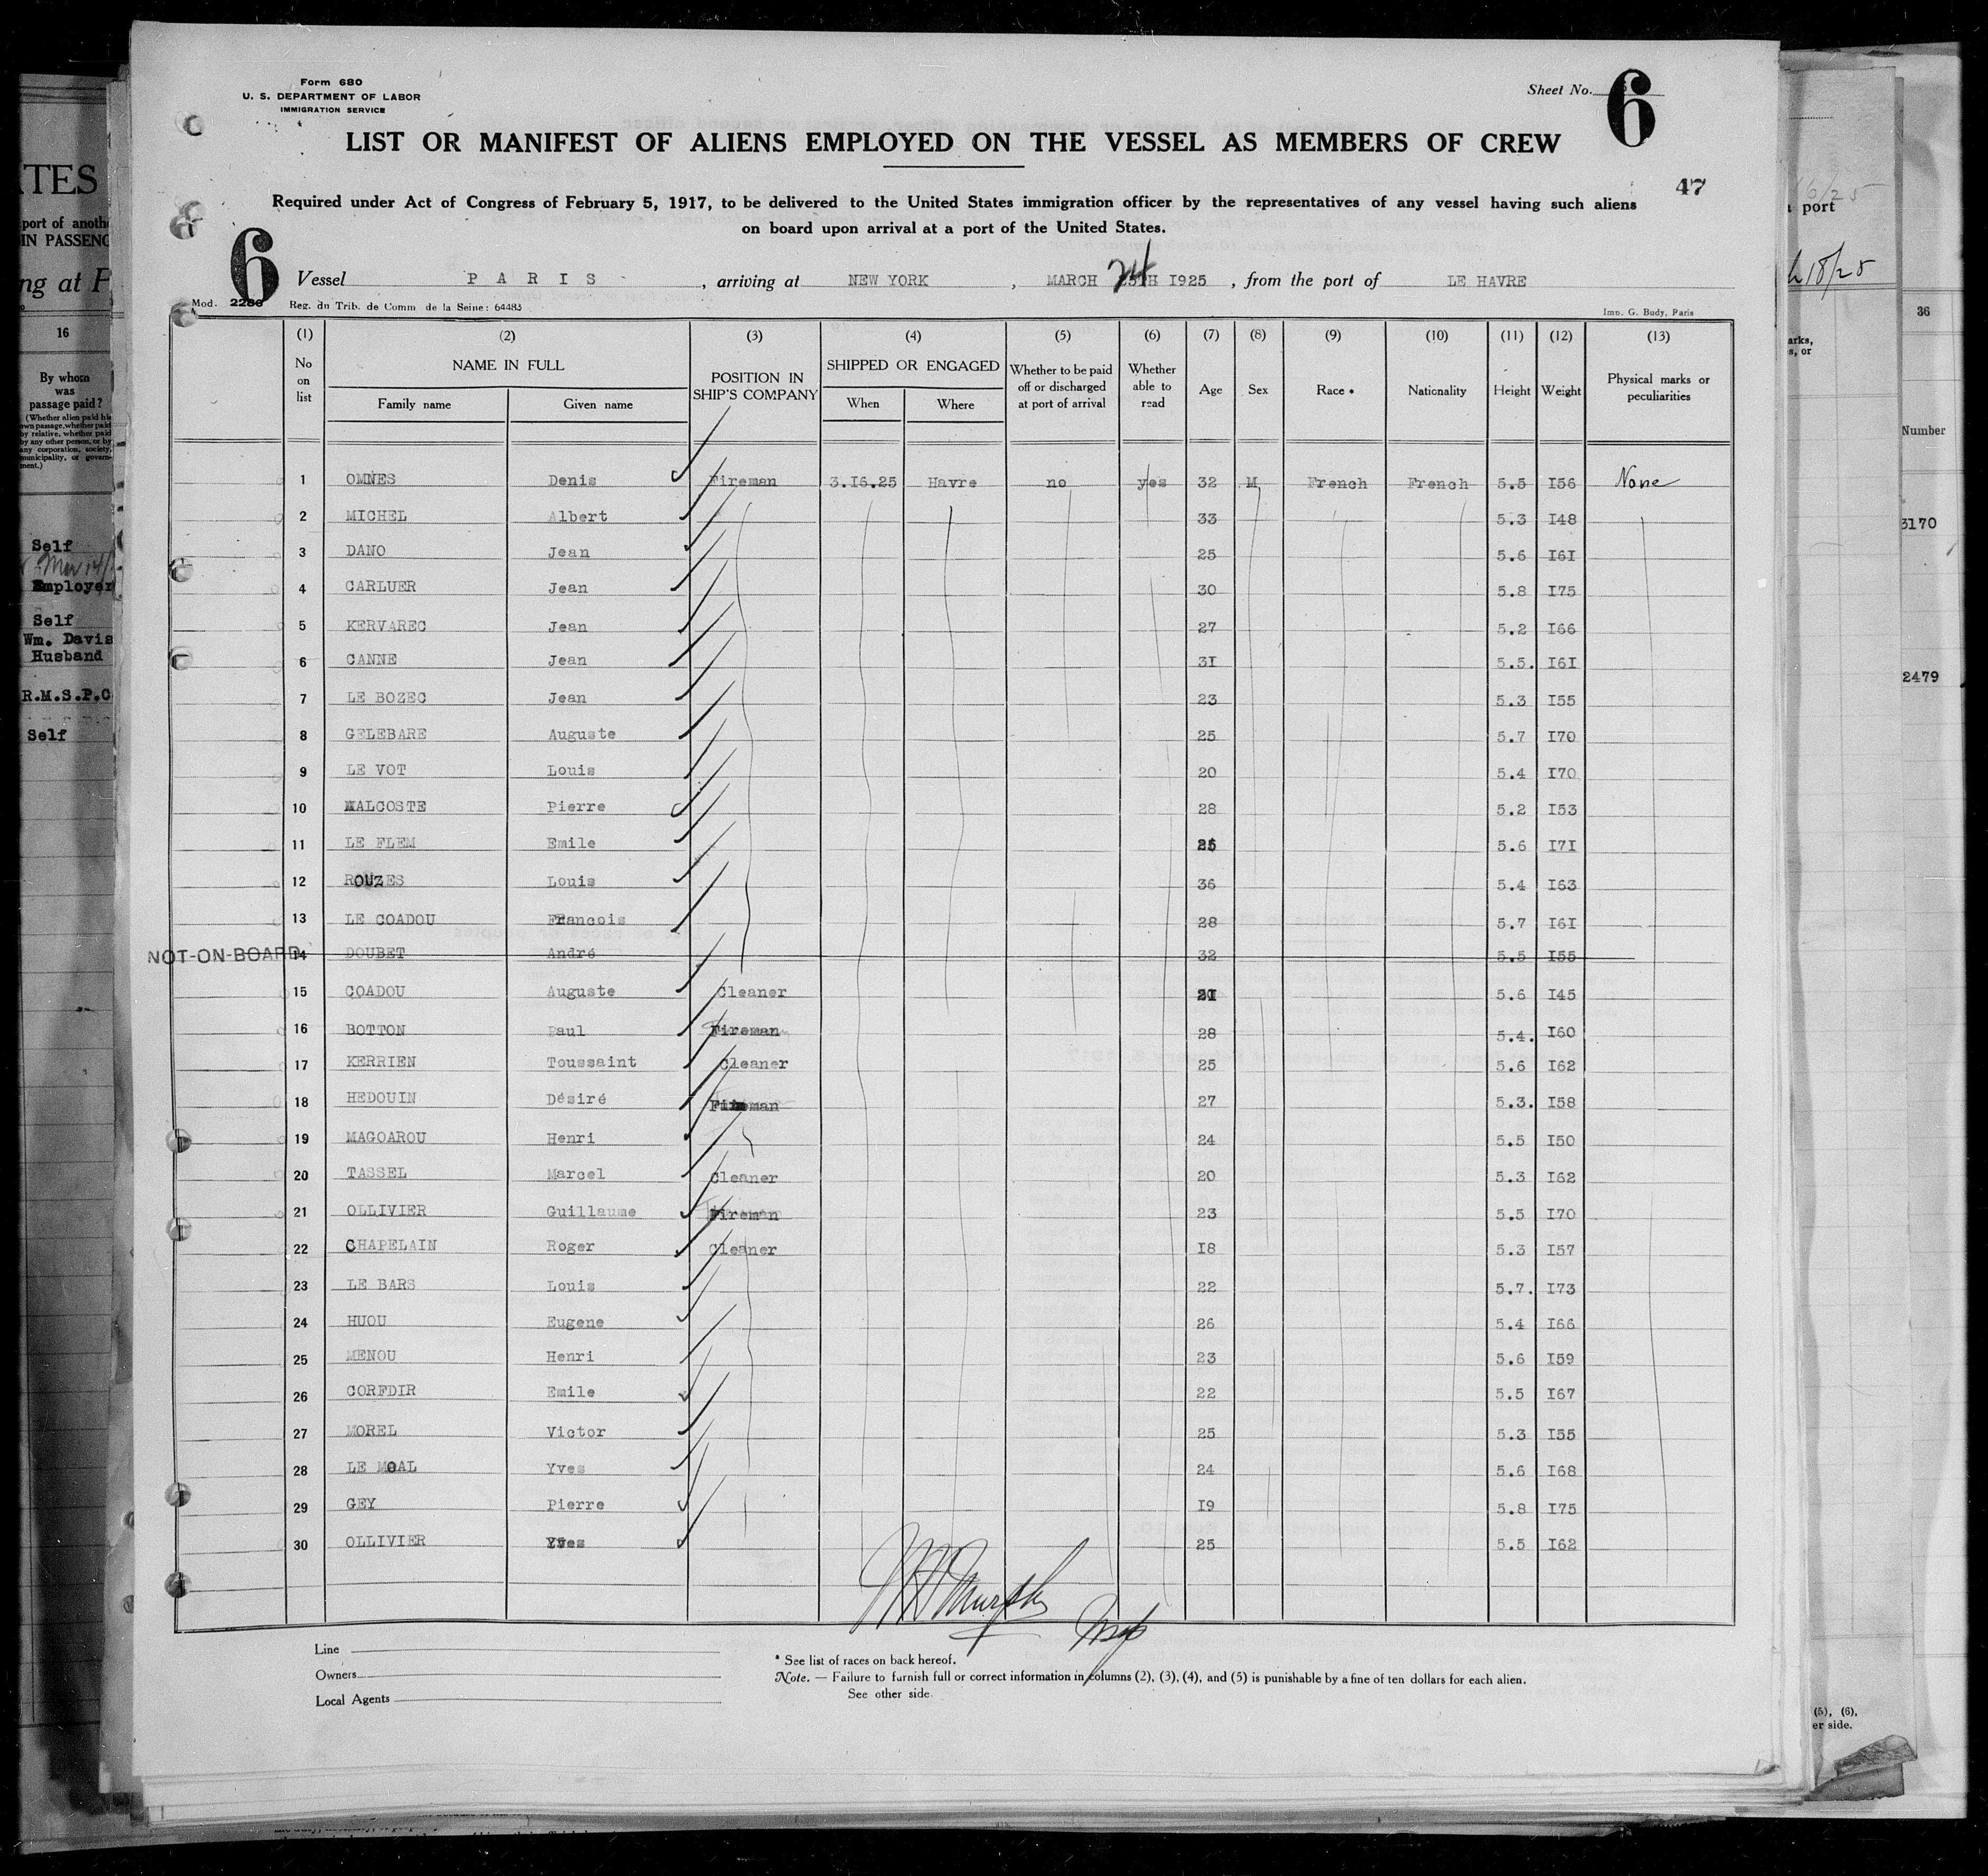 Form 680
U. S. DEPARTMENT OF LABOR
IMMIGRATION SERVICE
Sheet No. 6
LIST OR MANIFEST OF ALIENS EMPLOYED ON THE VESSEL AS MEMBERS OF CREW
47
Required under Act of Congress of February 5, 1917, to be delivered to the United States immigration officer by the representatives of any vessel having such aliens
on board upon arrival at a port of the United States.
6
Vessel PARIS, arriving at NEW YORK, MARCH 24 25TH I925, from the port of LE HAVRE
Mod. 2286 Reg. du Trib. de Comm de la Seine: 64483 Imp. G. Budy, Paris
(1) (2) (3) (4) (5) (6) (7) (8) (9) (10) (11) (12) (13)
No on list NAME IN FULL Family name Given name POSITION IN SHIP'S COMPANY SHIPPED OR ENGAGED When Where Whether to be paid off or discharged at port of arrival Whether able to read Age Sex Race * Nationality Height Weight Physical marks or peculiarities
1 OMNES Denis Fireman 3.I6.25 Havre no yes 32 M French French 5.5 I56 None
2 MICHEL Albert 33 5.3 I48
3 DANO Jean 25 5.6 I6I
4 CARLUER Jean 30 5.8 I75
5 KERVAREC Jean 27 5.2 I66
6 CANNE Jean 3I 5.5. I6I
7 LE BOZEC Jean 23 5.3 I55
8 GELEBARE Auguste 25 5.7 I70
9 LE VOT Louis 20 5.4 I70
10 MALCOSTE Pierre 28 5.2 I53
11 LE FLEM Emile 5.6 I7I
12 ROUZES Louis 36 5.4 I63
13 LE COADOU Francois 28 5.7 I6I
NOT-ON-BOARD 14 DOUBET André 32 5.5 I55
15 COADOU Auguste Cleaner 5.6 I45
16 BOTTON Paul Fireman 28 5.4. I60
17 KERRIEN Toussaint Cleaner 25 5.6 I62
18 HEDOUIN Désiré Fireman 27 5.3. I58
19 MAGOAROU Henri 24 5.5 I50
20 TASSEL Marcel Cleaner 20 5.3 I62
21 OLLIVIER Guillaume Fireman 23 5.5 I70
22 CHAPELAIN Roger Cleaner I8 5.3 I57
23 LE BARS Louis 22 5.7. I73
24 HUOU Eugene 26 5.4 I66
25 MENOU Henri 23 5.6 I59
26 CORFDIR Emile 22 5.5 I67
27 MOREL Victor 25 5.3 I55
28 LE MOAL Yves 24 5.6 I68
29 GEY Pierre I9 5.8 I75
30 OLLIVIER Yves 25 5.5 I62
Murphy Insp
Line
Owners
Local Agents
* See list of races on back hereof.
Note. — Failure to furnish full or correct information in columns (2), (3), (4), and (5) is punishable by a fine of ten dollars for each alien.
See other side.
ATES
port of anoth
IN PASSENG
ng at P
16
By whom
was
passage paid?
(Whether alien paid his
own passage, whether paid
by relative, whether paid
by any other person, or by
any corporation, society,
municipality, or govern-
ment.)
Self
Employer
Self
Wm. Davis
Husband
R.M.S.P.C
Self
port
h 18/25
arks,
s, or
36
Number
3170
2479
(5), (6),
er side.